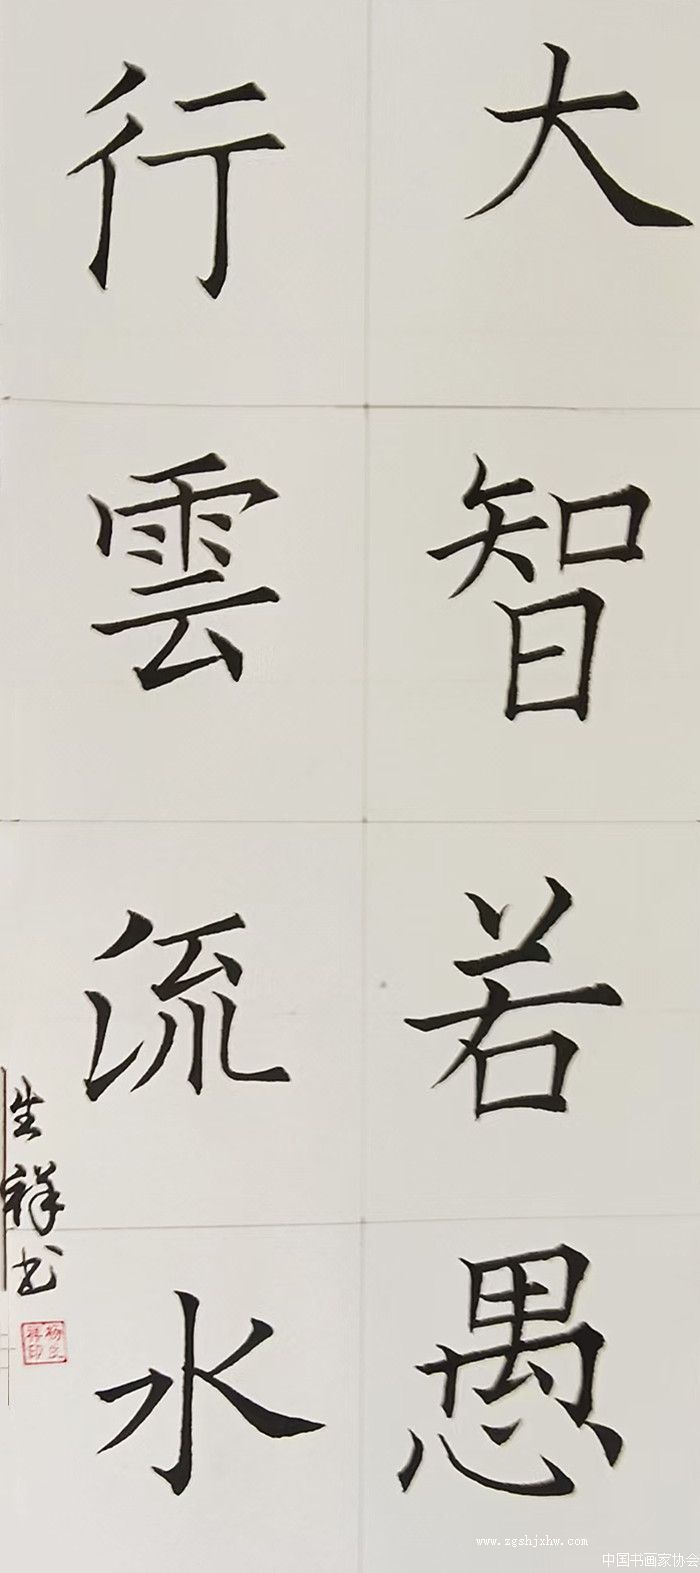 大智若愚
行雲流水
生祥书
杨生祥印
www.zgshjxhw.com
中国书画家协会